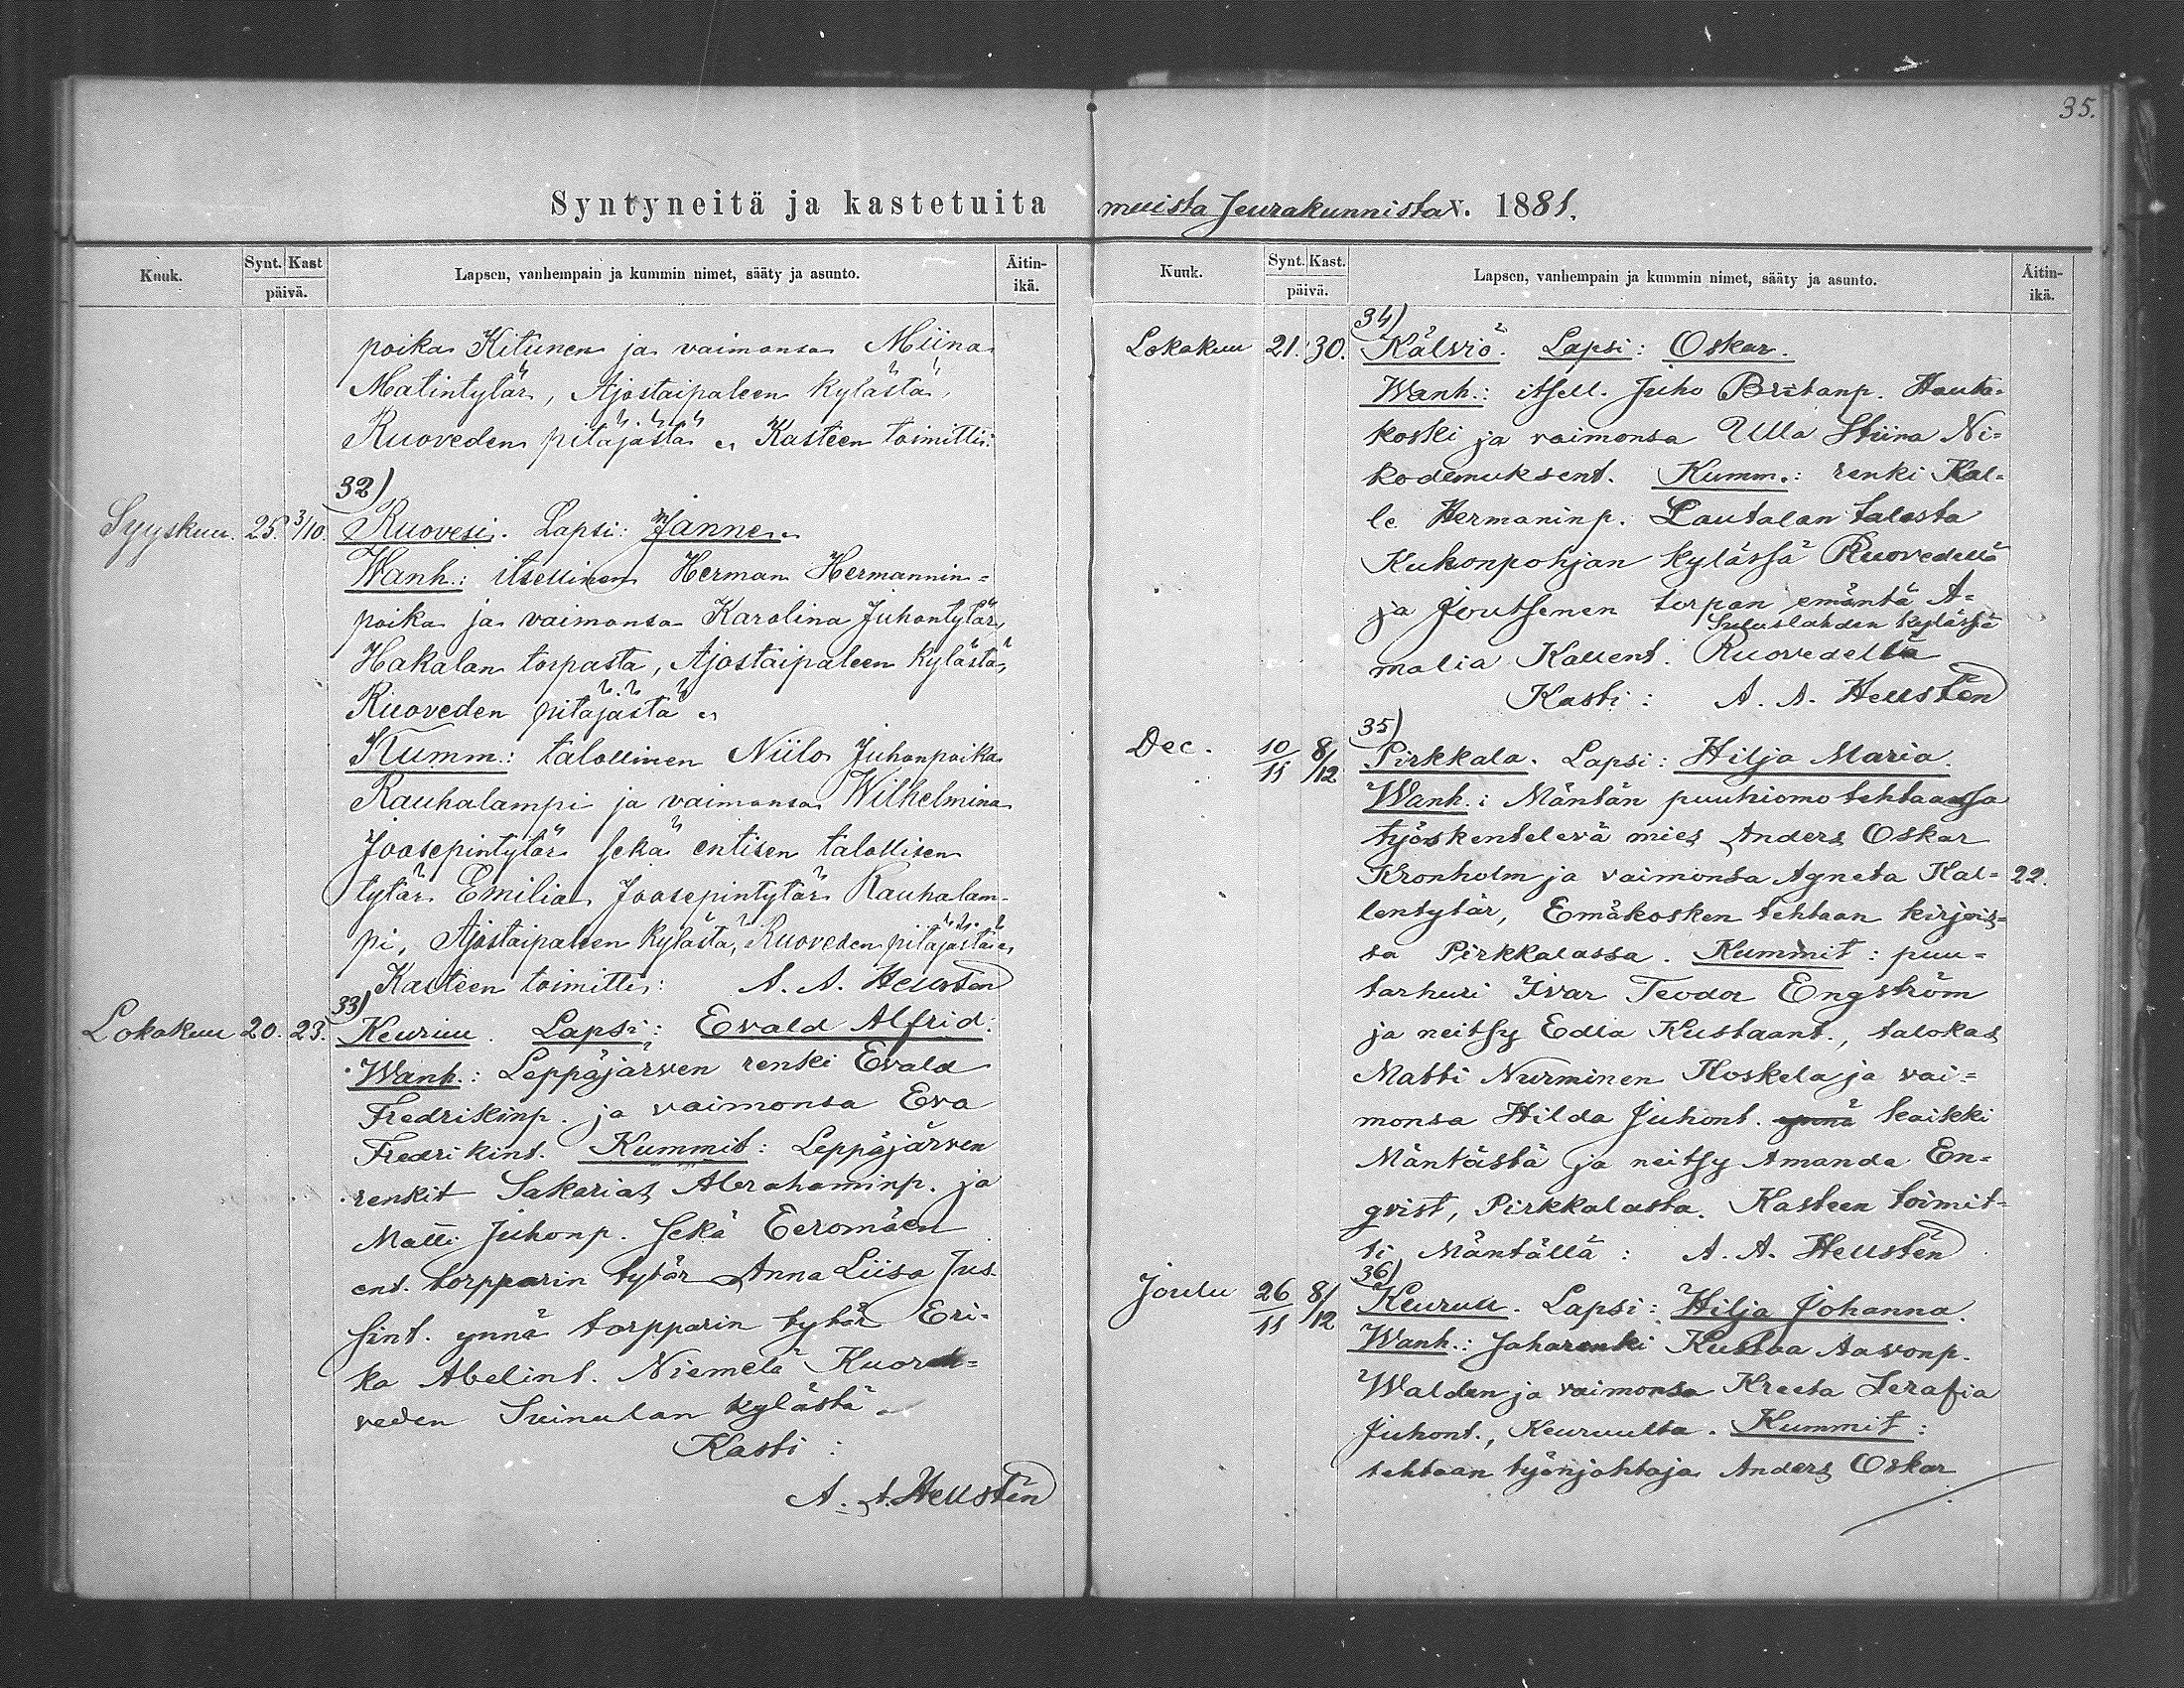 35.
Syntyneitä ja kastetuita muista Seurakunnista v. 1881.
Kuuk. Synt. Kast päivä. Lapsen, vanhempain ja kummin nimet, sääty ja asunto. Äitin-ikä.
poika Kitunen ja vaimonsa Miina
Matintytär, Ajostaipaleen kylästä,
Ruoveden pitäjästä. Kasteen toimitti:
32)
Syyskuu. 25. 3/10. Ruovesi. Lapsi: Janne.
Wanh.: itsellinen Herman Hermannin=
poika ja vaimonsa Karolina Juhontytär,
Hakalan torpasta, Ajostaipaleen kylästä,
Ruoveden pitäjästä.
Kumm.: talollinen Niilo Juhonpoika
Rauhalampi ja vaimonsa Wilhelmina
Joosepintytär sekä entisen talollisen
tytär Emilia Joosepintytär Rauhalam-
pi, Ajostaipaleen kylästä, Ruoveden pitäjästä.
Kasteen toimitti: A. A. Hellstén
33)
Lokakuu 20. 23. Keuruu. Lapsi: Evald Alfrid.
Wanh.: Leppäjärven renki Evald
Fredrikinp. ja vaimonsa Eva
Fredrikint. Kummit: Leppäjärven
renkit Sakarias Abrahaminp. ja
Matti Juhonp. sekä Eeromäen
ent. torpparin tytär Anna Liisa Jus-
sint. ynnä torpparin tytär Eri-
ka Abelint. Niemelä Kuore=
veden Suinulan kylästä.
Kasti:
A. A. Hellstén
Kuuk. Synt. Kast. päivä. Lapsen, vanhempain ja kummin nimet, sääty ja asunto. Äitin-ikä.
34)
Lokakuu 21. 30. Kälviö. Lapsi: Oskar.
Wanh.: itsell. Juho Hauta-
koski ja vaimonsa Ulla Stiina Ni=
kodemuksent. Kumm.: renki Kal=
le Hermaninp. Lautalan talosta
Kukonpohjan kylässä Ruovedellä
ja Joutsenen torpan emäntä A=
Suluslahden kylässä
malia Kallent. Ruovedeltä
Kasti: A. A. Hellstén
35)
Dec. 10/11 8/12 Pirkkala. Lapsi: Hilja Maria.
Wanh.: Mäntän puuhiomo tehtaassa
työskentelevä mies Anders Oskar
Kronholm ja vaimonsa Agneta Kal= 22.
lentytär, Emäkosken tehtaan kirjois=
sa Pirkkalassa. Kummit: puu=
tarhuri Ivar Teodor Engström
ja neitsy Edla Kustaant., talokas
Matti Nurminen Koskela ja vai=
monsa Hilda Juhont. ynnä kaikki
Mäntästä ja neitsy Amanda En=
gvist, Pirkkalasta. Kasteen toimit=
ti Mäntällä: A. A. Hellstén
36)
Joulu 26/11 8/12 Keuruu. Lapsi: Hilja Johanna.
Wanh.: Saharenki Kustaa Aavonp.
Walden ja vaimonsa Kreeta Serafia
Juhont., Keuruulta. Kummit:
tehtaan työnjohtaja Anders Oskar